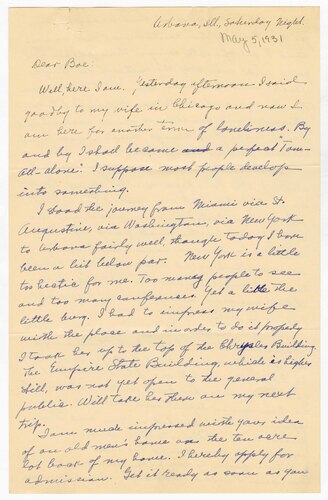 Urbana, Ill., Saturday Night.
May 5, 1931
Dear Boe:
Well here I am. Yesterday afternoon I said
goodby to my wife in Chicago and now I
am here for another term of loneliness. By
and by I shall become a perfect "one-
all-alone." I suppose most people develop
into something.
I stood the journey from Miami via St.
Augustine, via Washington, via New York
to Urbana fairly well, though today I have
been a bit below par. New York is a little
too hectic for me. Too many people to see
and too many conferences. Yet a little the
little bug. I had to impress my wife
with the place and in order to do it properly
I took her up to the top of the Chrysler Building.
The Empire State Building, which is higher
still, was not yet open to the general
public. Will take her there on my next
trip.
I am much impressed with your idea
of an old men's home on the ten acre
lot back of my home. I hereby apply for
admission. Get it ready as soon as you